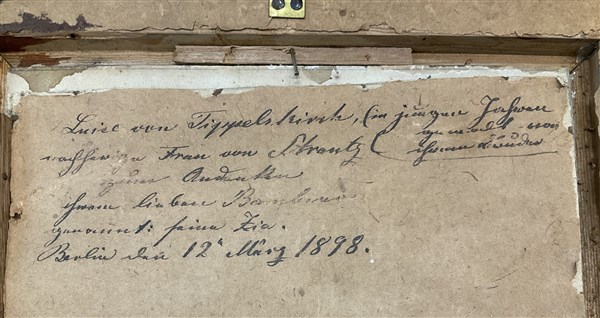 Luise von Tippelskirch, (in jungen Jahren
nachherige Frau von Strantz gemalt von
ihrem Bruder
zum Andenken
ihrem lieben
genannt: seine Zia.
Berlin den 12ᵗ März 1898.